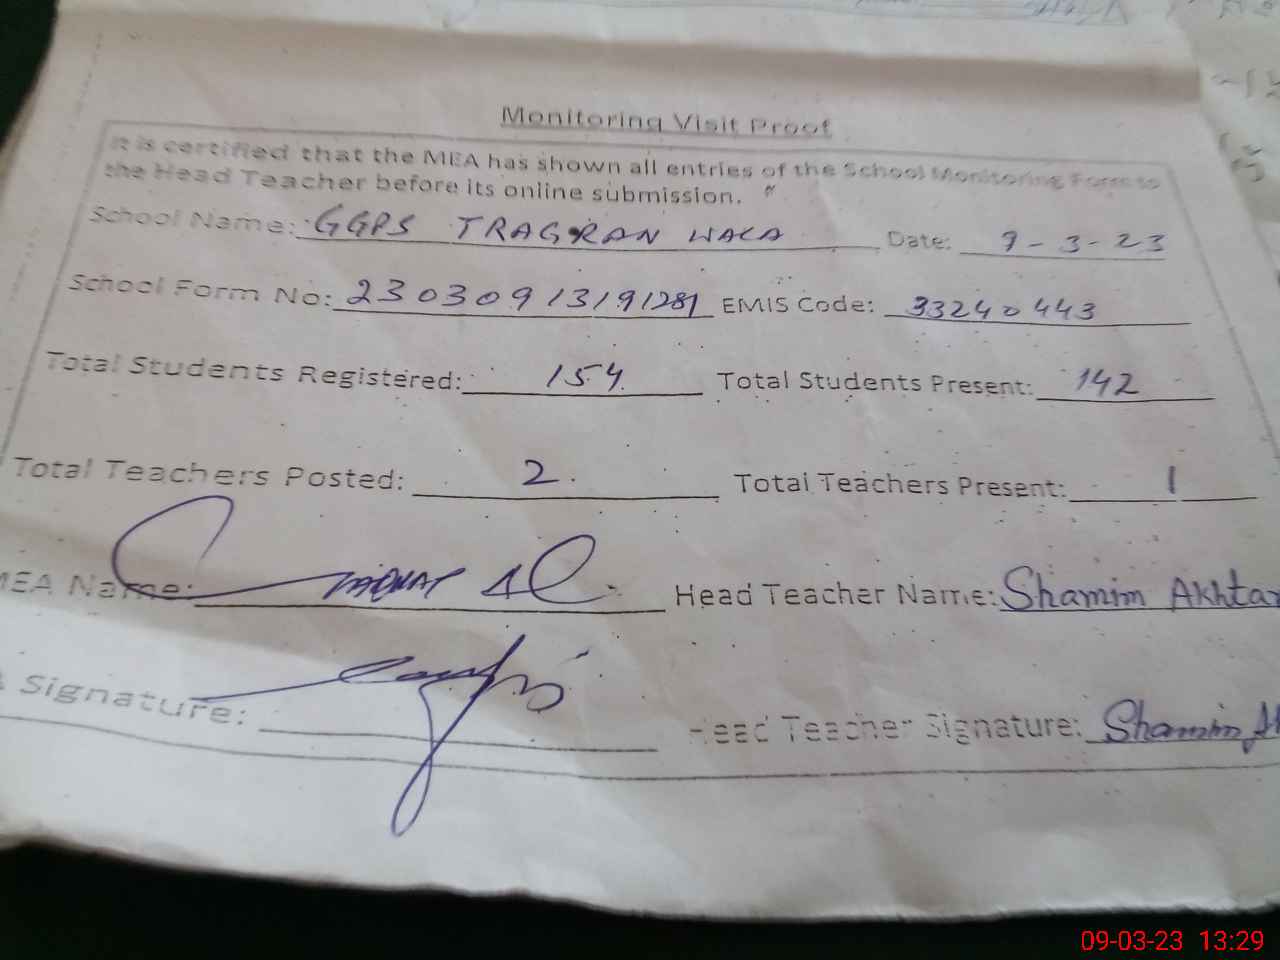 Monitoring Visit Proof
It is certified that the MEA has shown all entries of the School Monitoring Form to
the Head Teacher before its online submission.
School Name: GGPS TRAGRAN WALA Date: 9-3-23
School Form No: 23030913191281 EMIS Code: 33240443
Total Students Registered: 154 Total Students Present: 142
Total Teachers Posted: 2. Total Teachers Present: 1
MEA Name: Head Teacher Name: Shamim Akhtar
Signature: Head Teacher Signature: Shamim
09-03-23 13:29